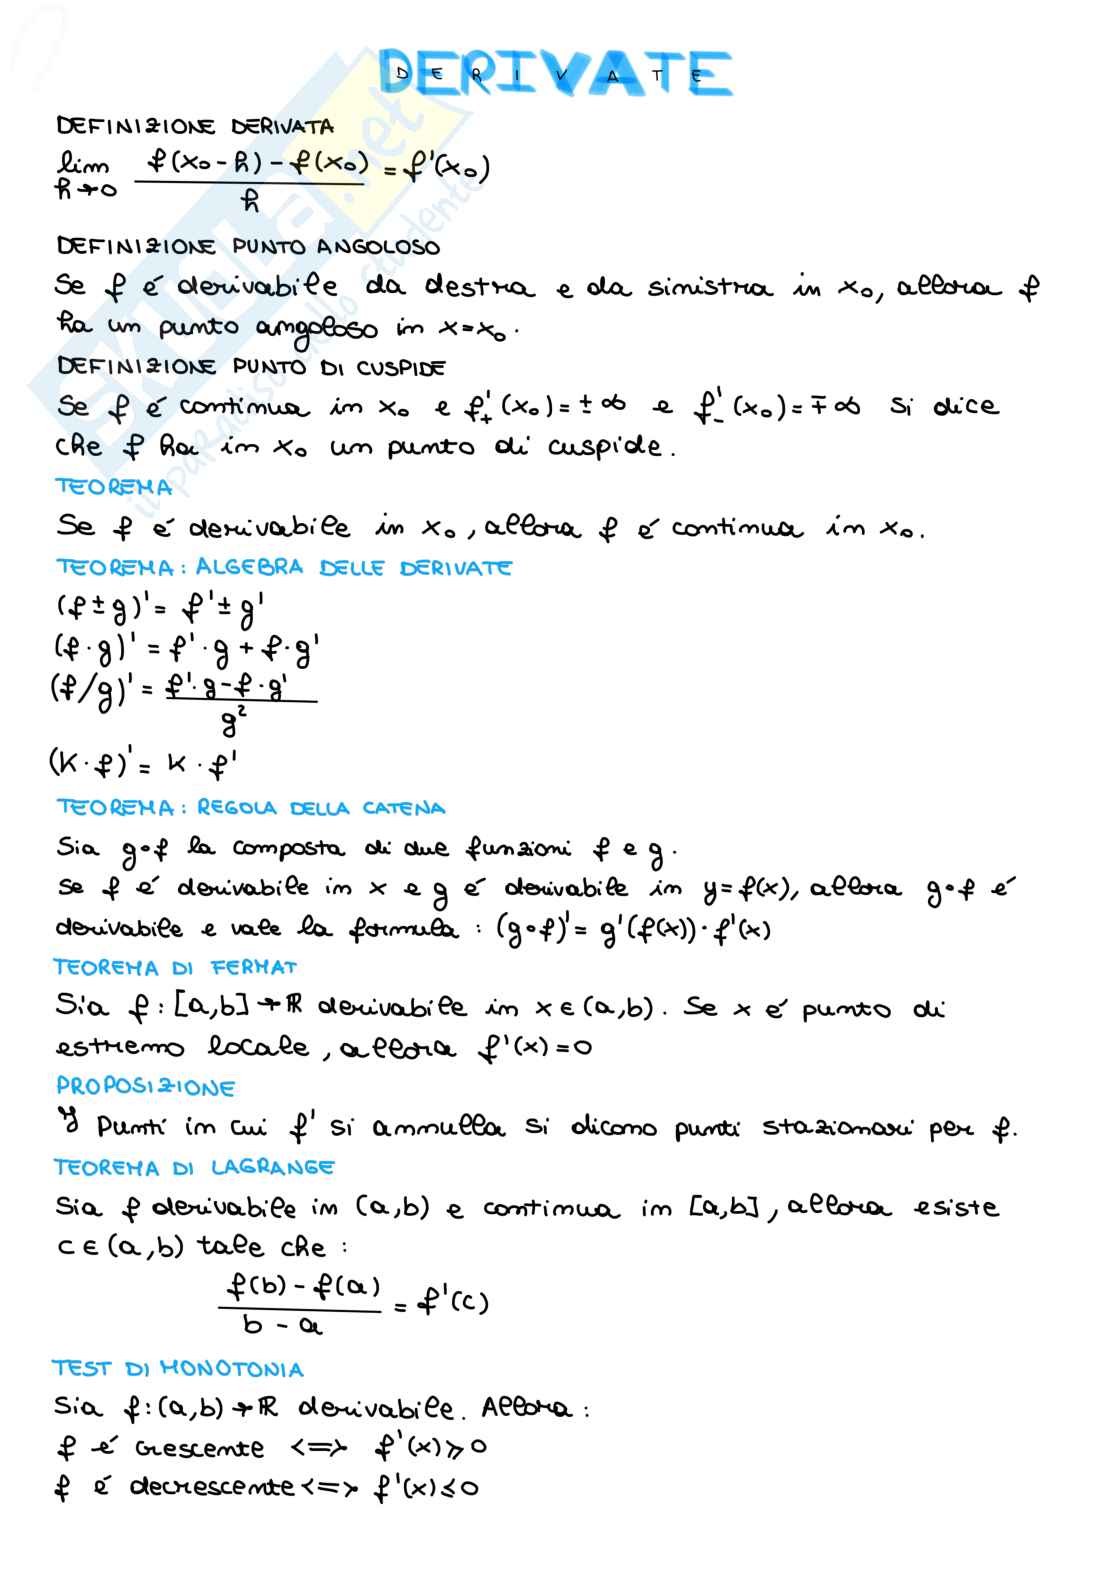 DERIVATE
DERIVATE
DEFINIZIONE DERIVATA
lim h→0 f(x₀-h)-f(x₀) / h = f'(x₀)
DEFINIZIONE PUNTO ANGOLOSO
Se f é derivabile da destra e da sinistra in x₀, allora f
ha un punto angoloso in x=x₀.
DEFINIZIONE PUNTO DI CUSPIDE
Se f é continua in x₀ e f'₊(x₀)=±∞ e f'₋(x₀)=∓∞ si dice
che f ha in x₀ un punto di cuspide.
TEOREMA
Se f é derivabile in x₀, allora f é continua in x₀.
TEOREMA: ALGEBRA DELLE DERIVATE
(f±g)'= f'±g'
(f·g)'=f'·g+f·g'
(f/g)'= f'·g-f·g' / g²
(K·f)'= K·f'
TEOREMA: REGOLA DELLA CATENA
Sia g∘f la composta di due funzioni f e g.
se f é derivabile in x e g é derivabile in y=f(x), allora g∘f é
derivabile e vale la formula: (g∘f)'= g'(f(x))·f'(x)
TEOREMA DI FERMAT
Sia f:[a,b]→ℝ derivabile in x∈(a,b). Se x é punto di
estremo locale, allora f'(x)=0
PROPOSIZIONE
I punti in cui f' si annulla si dicono punti stazionari per f.
TEOREMA DI LAGRANGE
Sia f derivabile in (a,b) e continua in [a,b], allora esiste
c∈(a,b) tale che:
f(b)-f(a) / b-a = f'(c)
TEST DI MONOTONIA
Sia f:(a,b)→ℝ derivabile. Allora:
f é crescente <=> f'(x)⩾0
f é decrescente <=> f'(x)≤0
SKUOLA.net
il paradiso dello studente